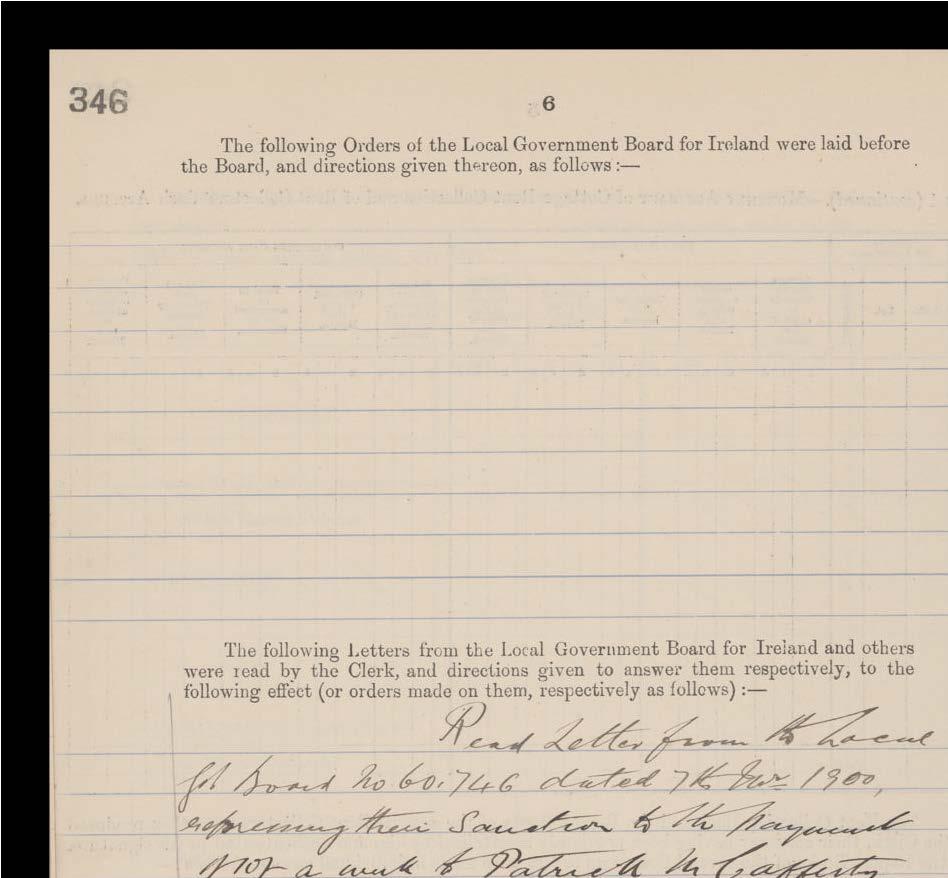 346
6
The following Orders of the Local Government Board for Ireland were laid before
the Board, and directions given thereon, as follows :—
The following Letters from the Local Government Board for Ireland and others
were read by the Clerk, and directions given to answer them respectively, to the
following effect (or orders made on them, respectively as follows) :—
Read Letter from the Local
Govt Board No 60.746 dated 7th 1900,
expressing their Sanction to the Payment
of a week to Patrick McCafferty